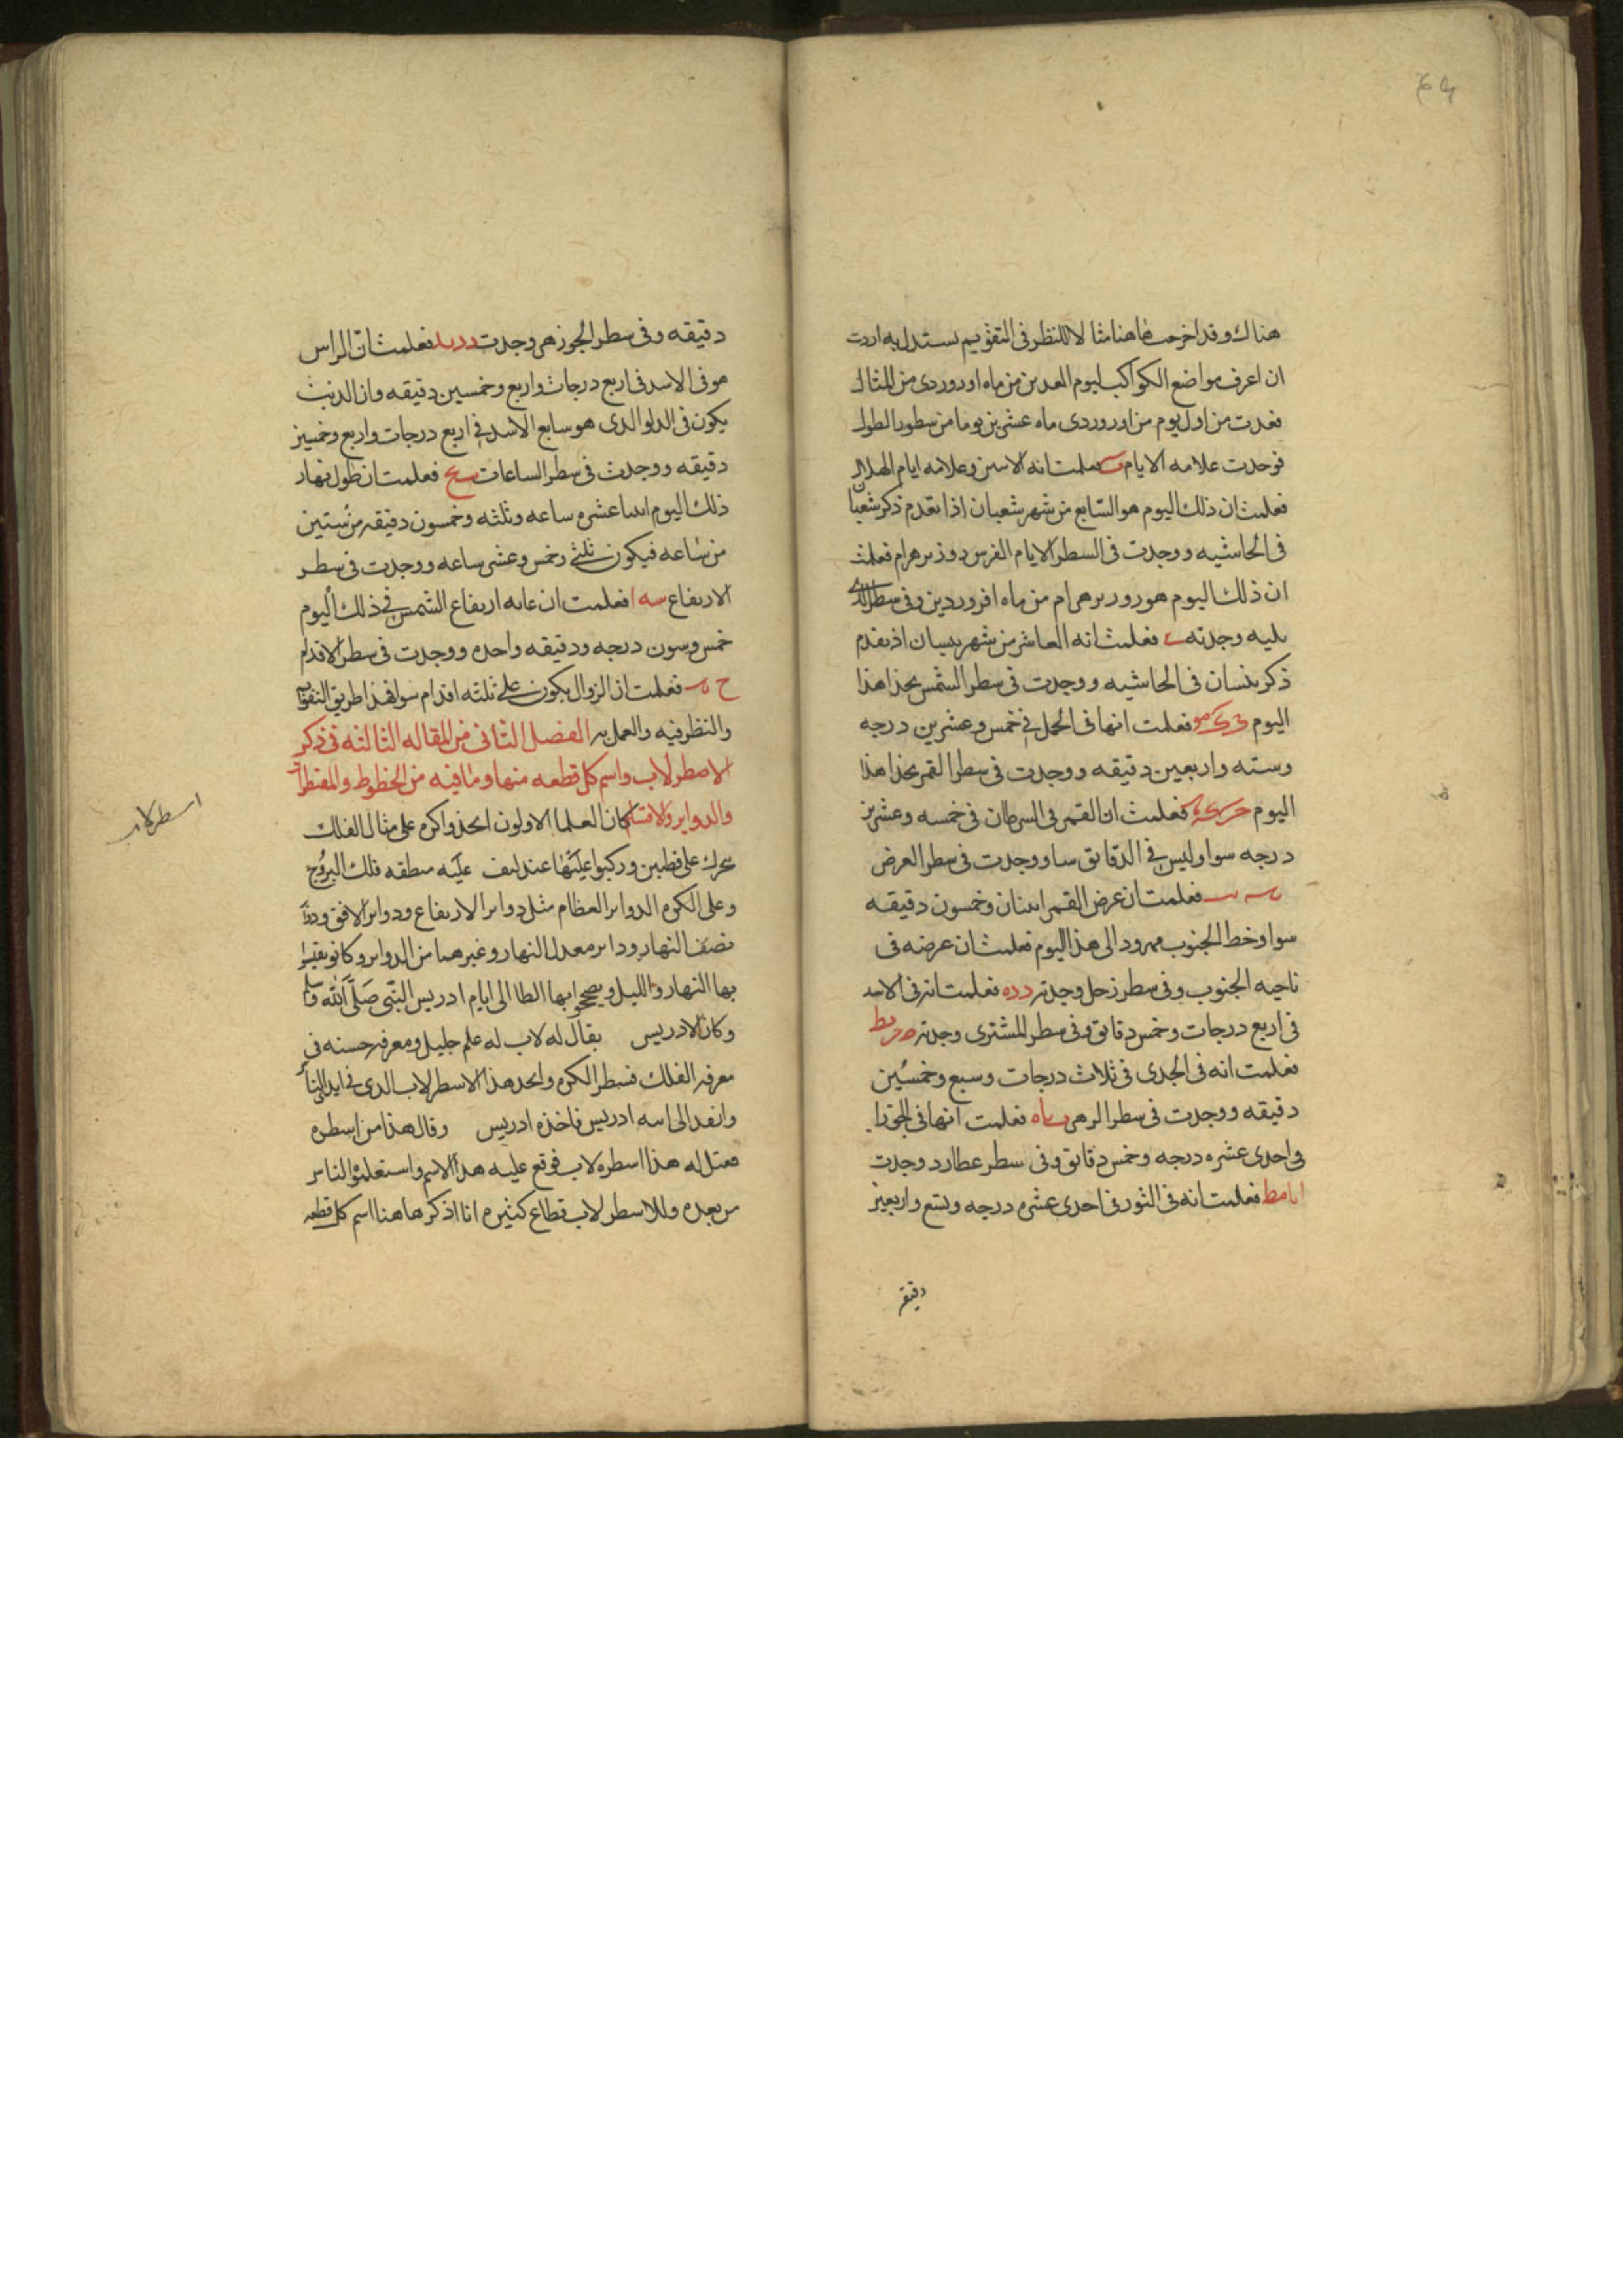 هناك وقد اخرجت هاهنا مثالا للنظر فى التقويم يستدل به اردت
ان اعرف مواضع الكواكب ليوم العشرين من ماه اوروردى من المثال
فعدت من اول يوم من اوروردى ماه عشرين يوما من سطور الطول
فوجدت علامه الايام فعلمت انه الاسن وعلامه ايام الهلال
فعلمت ان ذلك اليوم هو السابع من شهر شعبان اذا تقدم ذكر شعبان
فى الحاشيه ووجدت فى السطر الايام الفرس روز بهرام فعلمت
ان ذلك اليوم هو روز بهرام من ماه افروردين وفى سطر الذى
يليه وجدته فعلمت انه العاشر من شهر نيسان اذ تقدم
ذكر نيسان فى الحاشيه ووجدت فى سطر الشمس بحذا هذا
اليوم فعلمت انها فى الحمل فى خمس وعشرين درجه
وسته واربعين دقيقه ووجدت فى سطر القمر بحذا هذا
اليوم فعلمت ان القمر فى السرطان فى خمسه وعشرين
درجه سوا وليس فى الدقايق سا ووجدت فى سطر العرض
فعلمت ان عرض القمر اثنان وخمسون دقيقه
سوا وخط الجنوب ممدود الى هذا اليوم فعلمت ان عرضه فى
ناحيه الجنوب وفى سطر زحل وجدته د د ه فعلمت انه فى الاسد
فى اربع درجات وخمس دقايق وفى سطر المشترى وجدته
فعلمت انه فى الجدى فى ثلاث درجات وسبع وخمسين
دقيقه ووجدت فى سطر الزهره فعلمت انها فى الجوزا
فى احدى عشره درجه وخمس دقايق وفى سطر عطارد وجدت
ا يا مط فعلمت انه فى الثور فى احدى عشره درجه وتسع واربعين
دقيقه
دقيقه وفى سطر الجوزهر وجدت فعلمت ان الراس
هو فى الاسد فى اربع درجات واربع وخمسين دقيقه وان الذنب
يكون فى الدلو الذى هو سابع الاسد فى اربع درجات واربع وخمسين
دقيقه ووجدت فى سطر الساعات فعلمت ان طول نهار
ذلك اليوم اثنا عشره ساعه وثلثه وخمسون دقيقه من ستين
من ساعه فيكون ثلثى وخمس وعشر ساعه ووجدت فى سطر
الارتفاع سه ا فعلمت ان غايه ارتفاع الشمس فى ذلك اليوم
خمس وستون درجه ودقيقه واحده ووجدت فى سطر الاقدام
فعلمت ان الزوال يكون على ثلثه اقدام سوا فهذا طريق التقويم
والنظر فيه والعمل به الفصل الثانى من المقاله الثالثه فى ذكر
الاصطرلاب واسم كل قطعه منها وما فيه من الخطوط والمقنطرات
والدواير والاقسام كان العلما الاولون اتخذوا كره على مثال الفلك
تتحرك على قطبين وركبوا عليها عليه منطقه فلك البروج
وعلى الكره الدواير العظام مثل دواير الارتفاع ودواير الافق ودواير
نصف النهار وداير معدل النهار وغيرهما من الدواير وكانوا يقيسوا
بها النهار والليل ويصححوا بها الطالع الى ايام ادريس النبى صلى الله وسلم
وكان لادريس يقال له لاب له علم جليل ومعرفه حسنه فى
معرفه الفلك فبسط الكره واتخذ هذا الاسطرلاب الذى فى ايدى الناس
وانفذ الى ادريس فاخذه ادريس وقال هذا من اسطره
فقيل له هذا اسطره لاب فوقع عليه هذا الاسم واستعلموا الناس
من بعده وللاسطرلاب قطاع كثيره انا اذكر هاهنا اسم كل قطعه
اسطرلاب